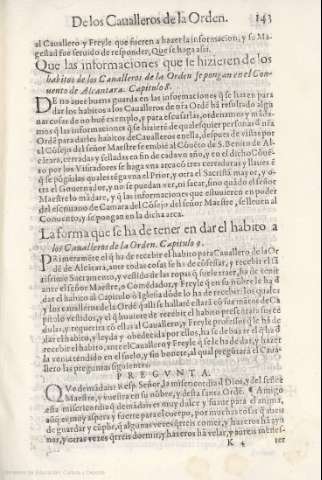 De los Caualleros de la Orden. 143
al Cauallero y Freyle que fueren a hazer la informacion, y su Ma-
gestad fue seruido de responder, Que se haga assi.
Que las informaciones que se hizieren de los
habitos de los Caualleros de la Orden se pongan en el Con-
uento de Alcantara. Capitulo 8.
DE no auer buena guarda en las informaciones q̃ se hazen para
dar los habitos a los Caualleros de nr̃a Ordẽ ha resultado algu-
nas cosas de no buẽ exemplo, y para escusarlas, ordenamos y mãda-
mos q̃ las informaciones q̃ se hizierẽ de qualesquier personas d nr̃a
Ordẽ para darles habitos de Caualleros en ella, despues de vistas por
el Cõsejo del señor Maestro se embiẽ al Cõuẽto de S. Benito de Al-
cãtara, cerradas y selladas en fin de cada vn año, y en el dicho Cõuẽ-
to por los Visitadores se haga vna arca cõ tres cerraduras y llaues
q̃ se põgã, las quales tẽga vna el Prior, y otra el Sacristã mayor, y o-
tra el Gouernador, y no se puedan ver, ni sacar, sino quãdo el señor
Maestro lo mãdare, y q̃ las informaciones que estuuieren en poder
del escriuano de Camara del Cõsejo del señor Maestro, se lleuen al
Conuento, y se pongan en la dicha arca.
La forma que se ha de tener en dar el habito a
los Caualleros de la Orden. Capitulo 9.
PRimeramẽte el q̃ ha de recebir el habito para Cauallero de la Or-
dẽ de Alcãtara, ante todas cosas se ha de cõfessar, y recebir el sã
tissimo Sacramento, y vestido de las ropas q̃ suele traer, ha de venir
ante el señor Maestro, o Comẽdador, y Freyle q̃ en su nõbre le ha d
dar el habito al Capitulo o Iglesia dõde lo ha de recebir: los quales
y los caualleros de la Ordẽ q̃ alli se hallarẽ estarã cõ sus mãtos de Ca-
pitulo vestidos, y el q̃ huuiere de recebir el habito
dular, y requerira cõ ella al Cauallero, y Freyle professo q̃ le ha de
dar el habito, y leyda y obedecida por ellos, ha se de
recebir el habito, ante el Cauallero y Freyle q̃ se le ha de dar, y hazer
la venia tendido en el suelo, y sin bonete, al qual preguntarã el Caua-
llero las preguntas siguientes.
PREGVNTA.
QVe demãdais? Resp. Señor, la misericordia d Dios, y del señor
Maestre, y vuestra en su nõbre, y desta santa Ordẽ. ¶ Amigo
esta misericordia q̃ demãdais es muy dulce y suaue para el anima,
aũq̃ es muy aspera y fuerte para el cuerpo, por muchas cosas q̃ aueis
de guardar y cũplir, q̃ algunas vezes q̃rreis comer, y hazeros hã ayu-
nar, y otras vezes q̃rreis dormir, y hazeros hã velar, y
K 4 ter
Ministerio de Educación, Cultura y Deporte